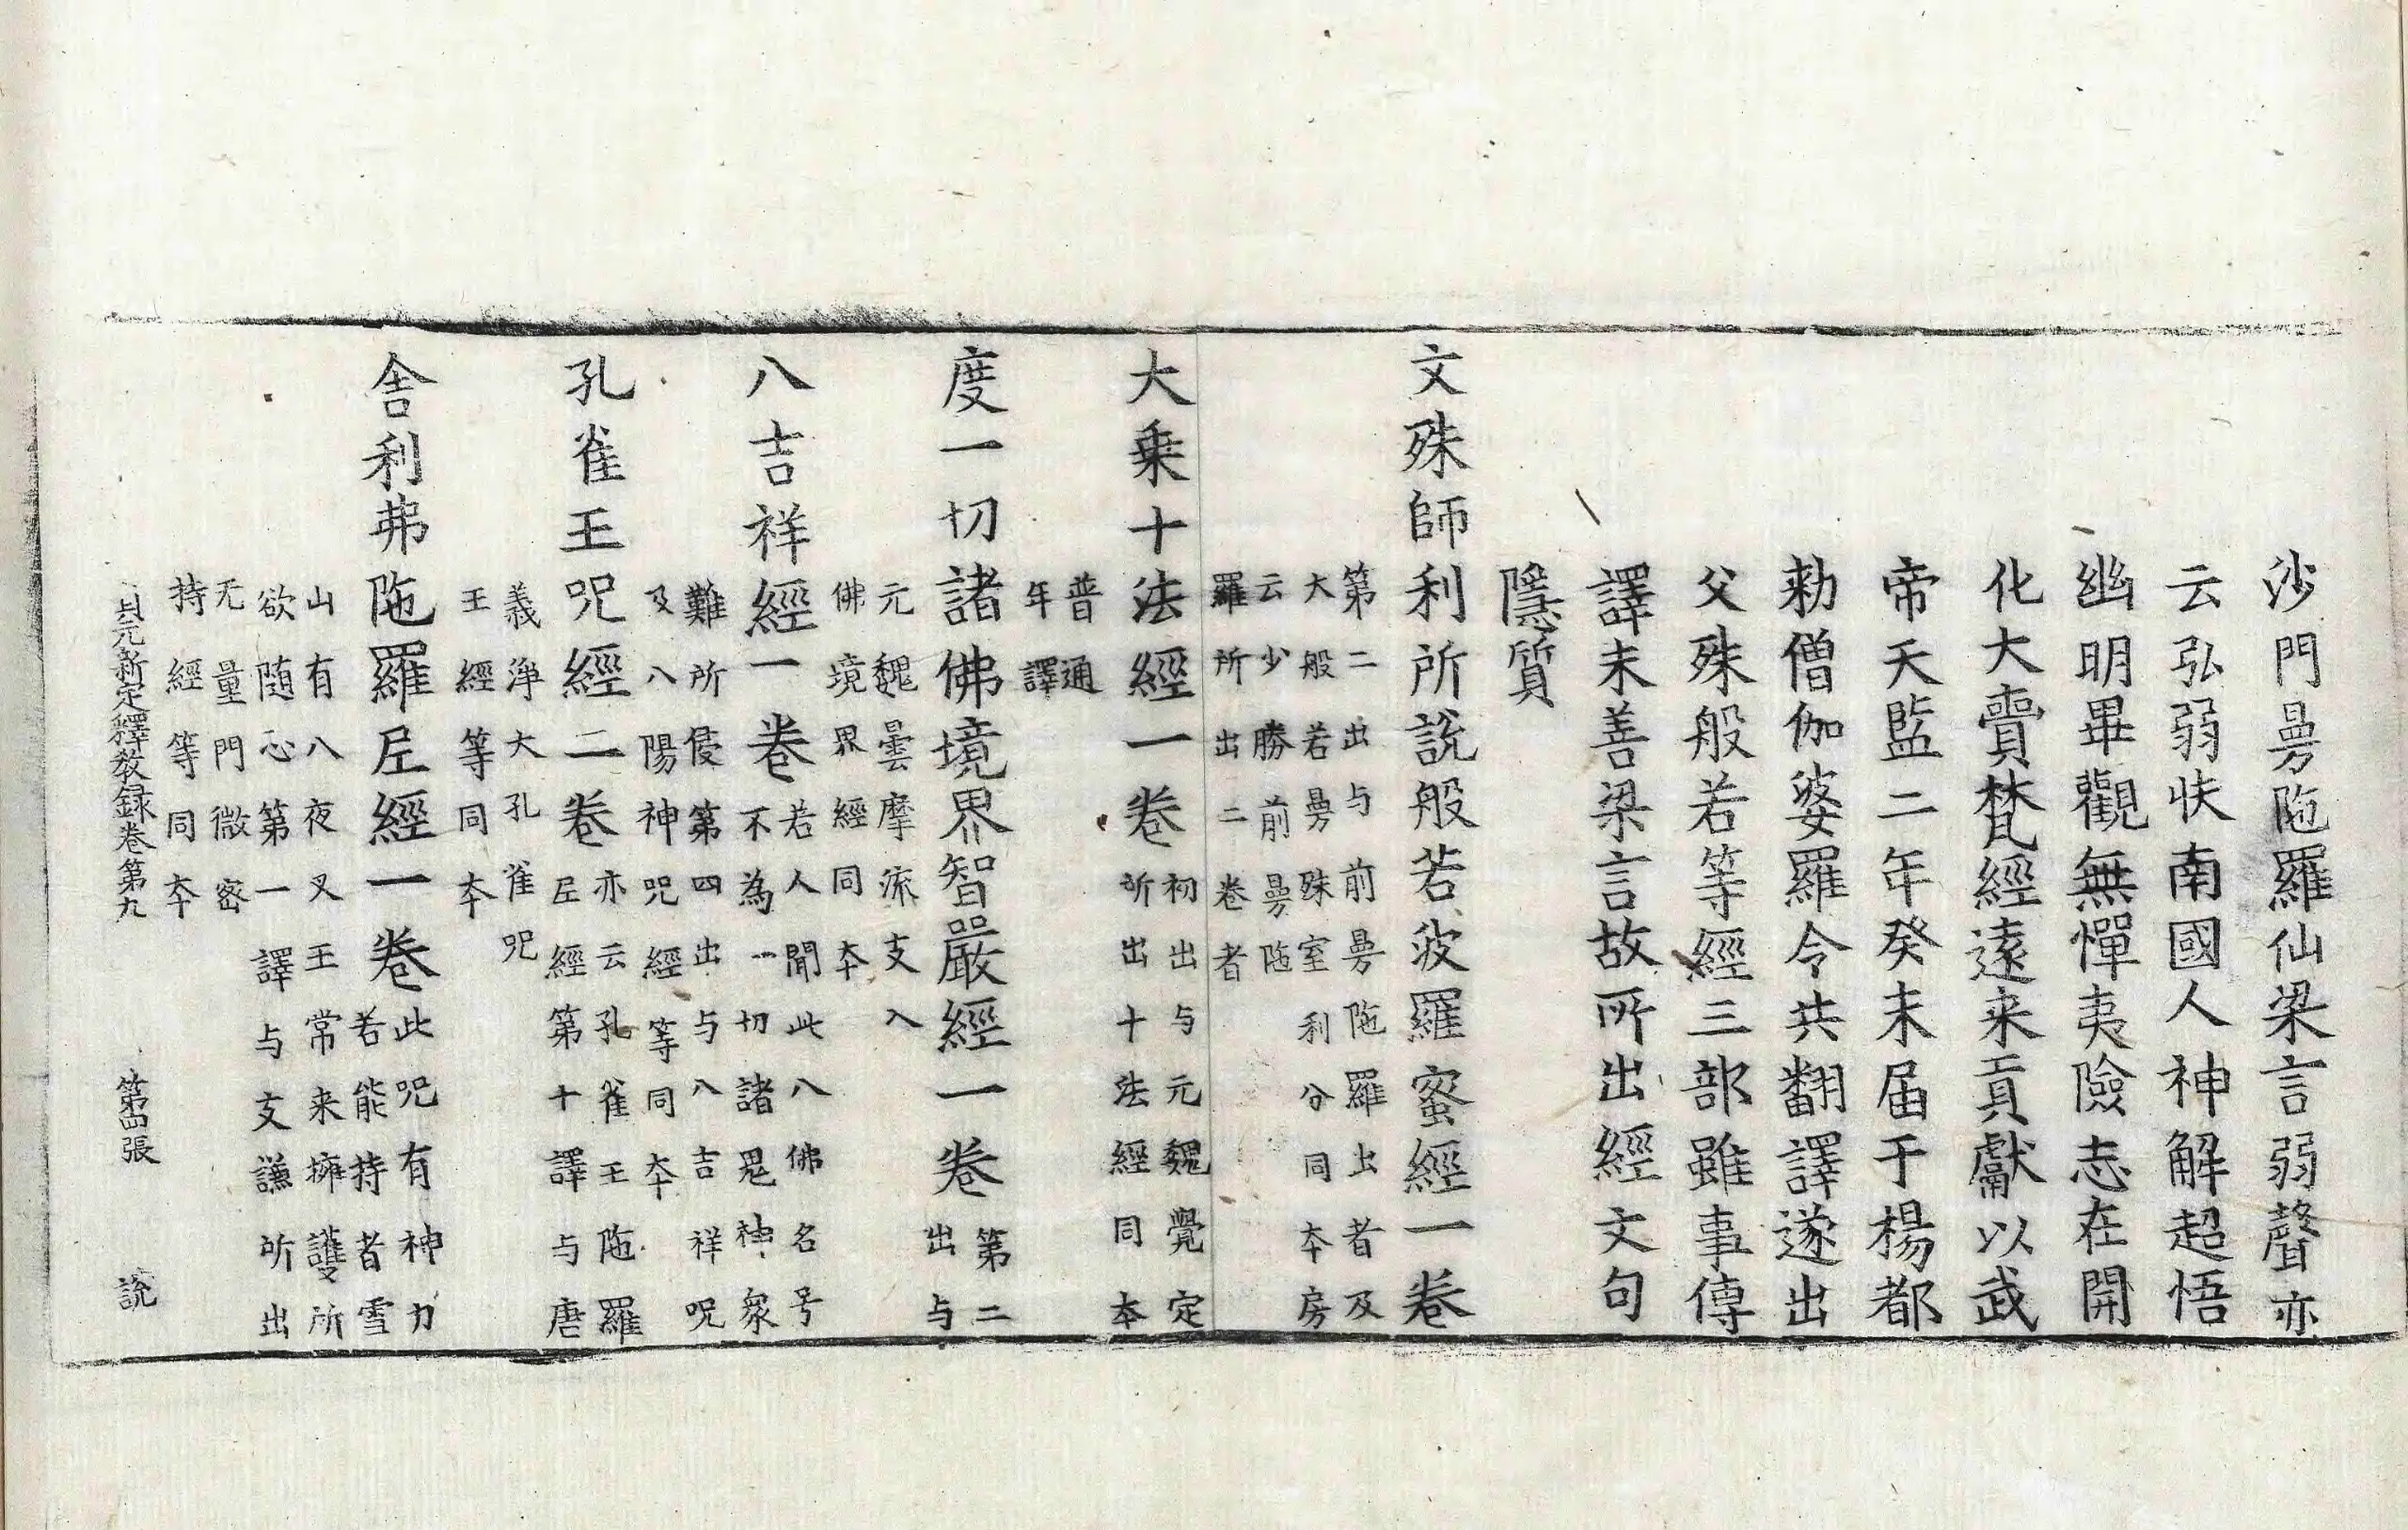 沙門曼陁羅仙梁言弱聲亦
云弘弱扶南國人神解超悟
幽明畢觀無憚夷險志在開
化大齎梵經遠来貢獻以武
帝天監二年癸未届于楊都
勑僧伽婆羅令共翻譯遂出
父殊般若等經三部雖事傳
譯未善梁言故所出經文句
隱質
文殊師利所說般若波羅蜜經一卷
第二出与前曼陁羅出者及
大般若曼殊室利分同夲房
云少勝前曼陁
羅所出二卷者
大乗十法經一卷
初出与元魏覺定
所出十法經同本
普通
年譯
度一切諸佛境界智嚴經一卷
第二
出与
元魏曇摩流支入
佛境界經同夲
八吉祥經一卷
若人聞此八佛名号
不為一切諸鬼神衆
難所侵第四出与八吉祥呪
及八陽神呪經等同夲
孔雀王呪經二卷
亦云孔雀王陁羅
尼經第十譯与唐
義淨大孔雀呪
王經等同夲
舍利弗陁羅尼經一卷
此呪有神力
若能持者雪
山有八夜叉王常来擁護所
欲随心第一譯与支謙所出
无量門微密
持經等同夲
開元新定釋教録卷第九 第四張 說